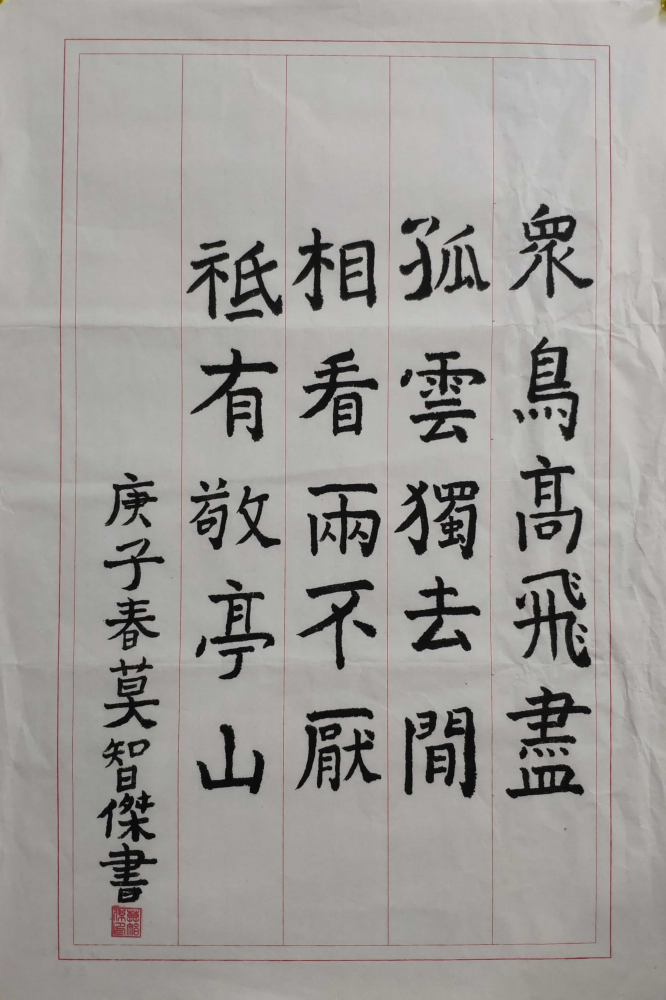 眾鳥高飛盡
孤雲獨去間
相看兩不厭
祗有敬亭山
庚子春莫智傑書